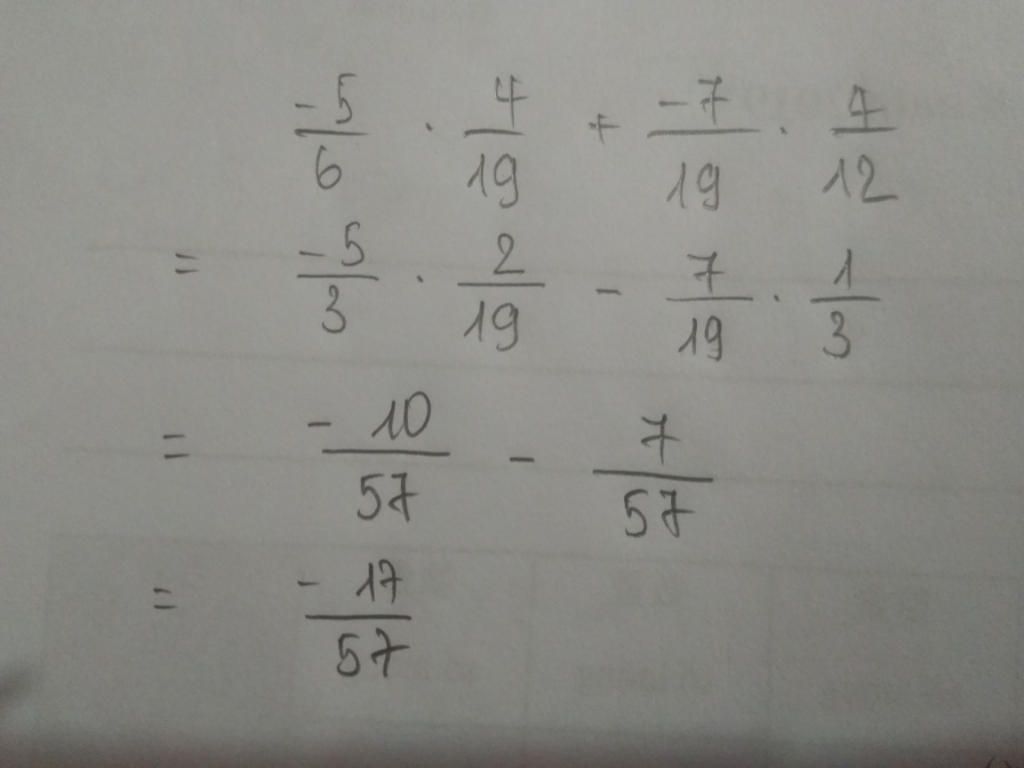 -5/6 · 4/19 + -7/19 · 4/12
= -5/3 · 2/19 - 7/19 · 1/3
= -10/57 - 7/57
= -17/57